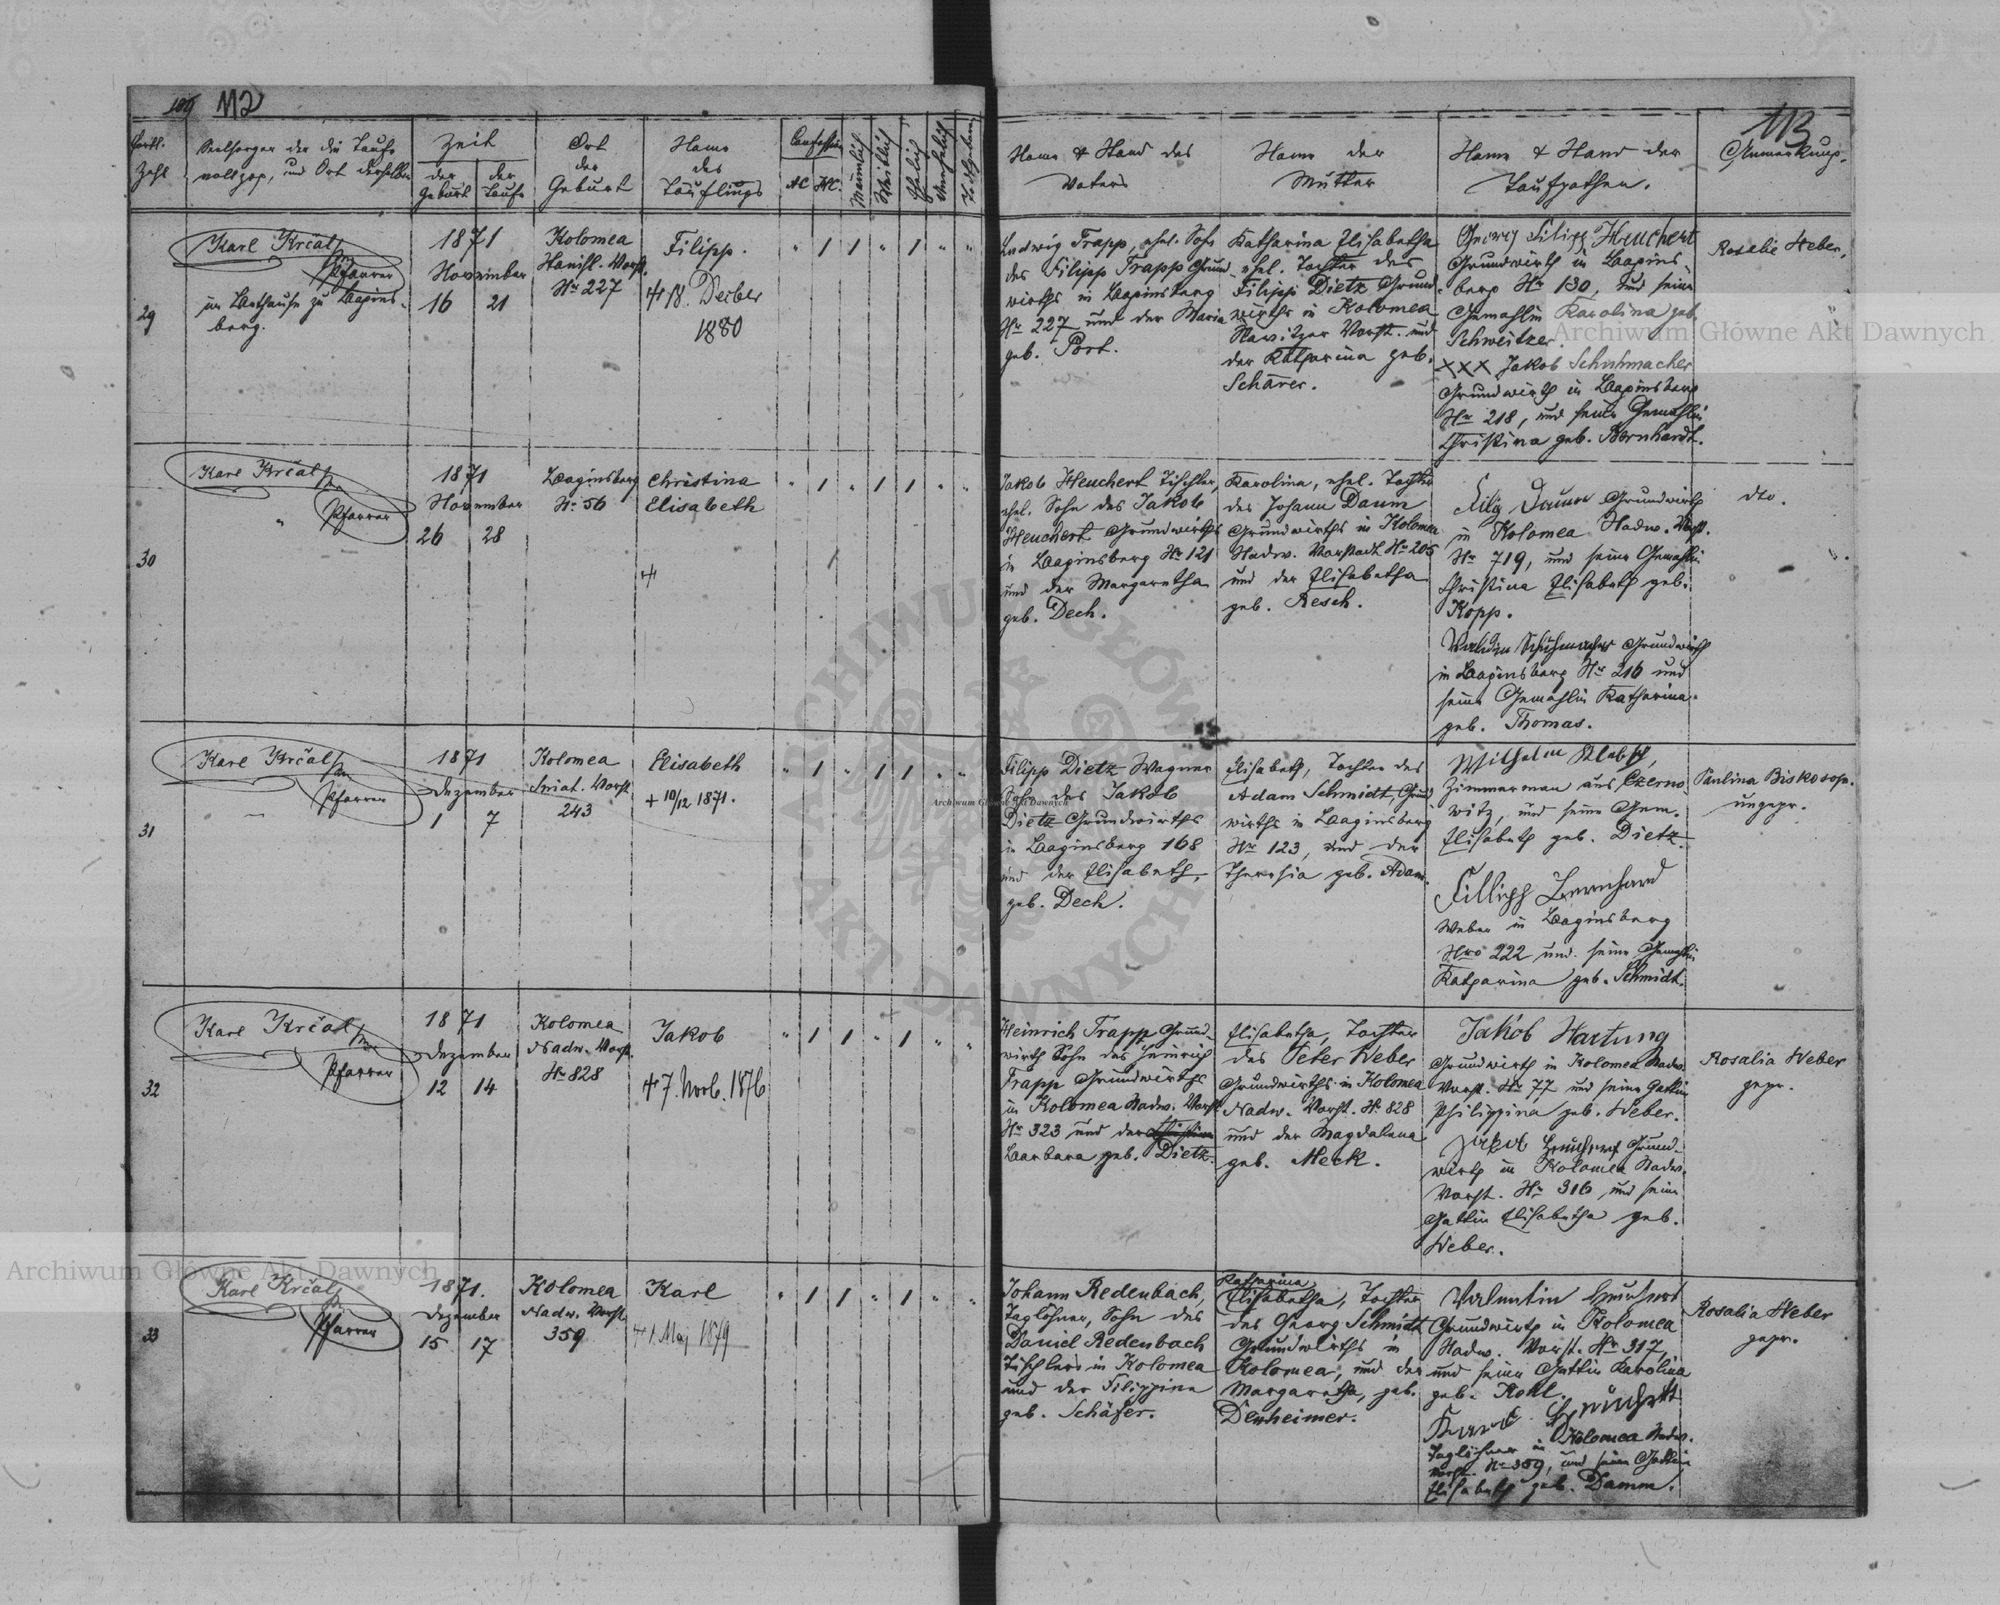 109 112
Fortl. Zahl
Seelsorger der die Taufe vollzog, und Ort derselben
Zeit
der Geburt
der Taufe
Ort der Geburt
Name des Täuflings
Confession
AC HC.
Männlich
Weiblich
Ehelich
Unehelich
Todtgeboren
29
Karl Krčal
Pfarrer
im Bethause zu Baginsberg.
1871
November
16 21
Kolomea
Stanisl. Vorst.
Nr 227
Filipp.
18. Dezber
1880
" 1 1 " 1 " "
30
Karl Krčal
Pfarrer
1871
November
26 28
Baginsberg
Nr 56
Christina
Elisabeth
" 1 " 1 1 " "
31
Karl Krčal
Pfarrer
1871
Dezember
1 7
Kolomea
Sniat. Vorst.
243
Elisabeth
+ 10/12 1871.
" 1 " 1 1 " "
32
Karl Krčal
Pfarrer
1871
Dezember
12 14
Kolomea
Nadw. Vorst.
Nr 828
Jakob
7. Novb. 1876
" 1 1 " 1 " "
33
Karl Krčal
Pfarrer
1871.
Dezember
15 17
Kolomea
Nadw. Vorst.
359
Karl
1. Maj 1879
" 1 1 " 1 " "
113
Name & Stand des
Vaters
Name der
Mutter
Name & Stand der
Taufpathen.
Anmerkung.
Ludwig Trapp, ehel. Sohn
des Filipp Trapp Grund
wirths in Baginsberg
Nr 227 und der Maria
geb. Port.
Katharina Elisabetha
ehel. Tochter des
Filipp Dietz Grund
wirths in Kolomea
Vorst. und
der Katharina geb.
Schärer.
Georg Filipp Heuchert
Grundwirth in Bagins
berg Nr 130, und seine
Gemahlin Karolina geb.
Schweitzer.
XXX Jakob Schuhmacher
Grundwirth in Baginsberg
Nr 218, und seine Gemahlin
Christina geb. Bernhardt.
Rosalie Weber,
Jakob Heuchert Tischler,
ehel. Sohn des Jakob
Heuchert Grundwirths
in Baginsberg Nr 121
und der Margaretha
geb. Dech.
Karolina, ehel. Tochter
des Johann Daum
Grundwirths in Kolomea
Nadw. Vorstadt Nr 205
und der Elisabetha
geb. Resch.
Filip Daum Grundwirth
in Kolomea Nadw. Vorst.
Nr 719, und seine Gemahlin
Christina Elisabeth geb.
Kopp.
Valentin Schuhmacher Grundwirth
in Baginsberg Nr 216 und
seine Gemahlin Katharina
geb. Thomas.
dto.
Filipp Dietz Wagner
Sohn des Jakob
Dietz Grundwirths
in Baginsberg 168
und der Elisabeth,
geb. Dech.
Elisabeth, Tochter des
Adam Schmidt, Grund
wirths in Baginsberg
Nr 123, und der
Theresia geb. Adam.
Wilhelm
Zimmerman aus Czerno
witz, und seine Gem.
Elisabeth geb. Dietz.
Fillipp Bernhard
Weber in Baginsberg
Nro 222 und seine Gemahlin
Katharina geb. Schmidt.
Paulina
ungepr.
Heinrich Trapp Grund-
wirth Sohn des Heinrich
Trapp Grundwirths
in Kolomea Nadw. Vorst.
Nr 323 und der
Barbara geb. Dietz.
Elisabetha, Tochter
des Peter Weber
Grundwirths in Kolomea
Nadw. Vorst. Nr 828
und der Magdalena
geb. Meck.
Jakob Hartung
Grundwirth in Kolomea Nadw.
Vorst. Nr 77 und seine Gattin
Philippina geb. Weber.
Jakob Heuchert Grund-
wirth in Kolomea Nadw.
Vorst. Nr 316 und seine
Gattin Elisabetha geb.
Weber.
Rosalia Weber
gepr.
Johann Redenbach,
Taglöhner, Sohn des
Daniel Redenbach
Tischlers in Kolomea
und der Filippina
geb. Schäfer.
Katharina
Elisabetha, Tochter
des Georg Schmidt
Grundwirths in
Kolomea, und der
Margaretha, geb.
Denheimer.
Valentin Heuchert
Grundwirth in Kolomea
Nadw. Vorst. Nr 317,
und seine Gattin Karolina
geb. Kohl.
Heuchert
Taglöhner in Kolomea Nadw.
Vorst. Nr 359, und seine Gattin
Elisabeth geb. Damm.
Rosalia Weber
gepr.
Archiwum Główne Akt Dawnych
Archiwum Główne Akt Dawnych
Archiwum Główne Akt Dawnych
ARCHIWUM GŁÓWNE AKT DAWNYCH